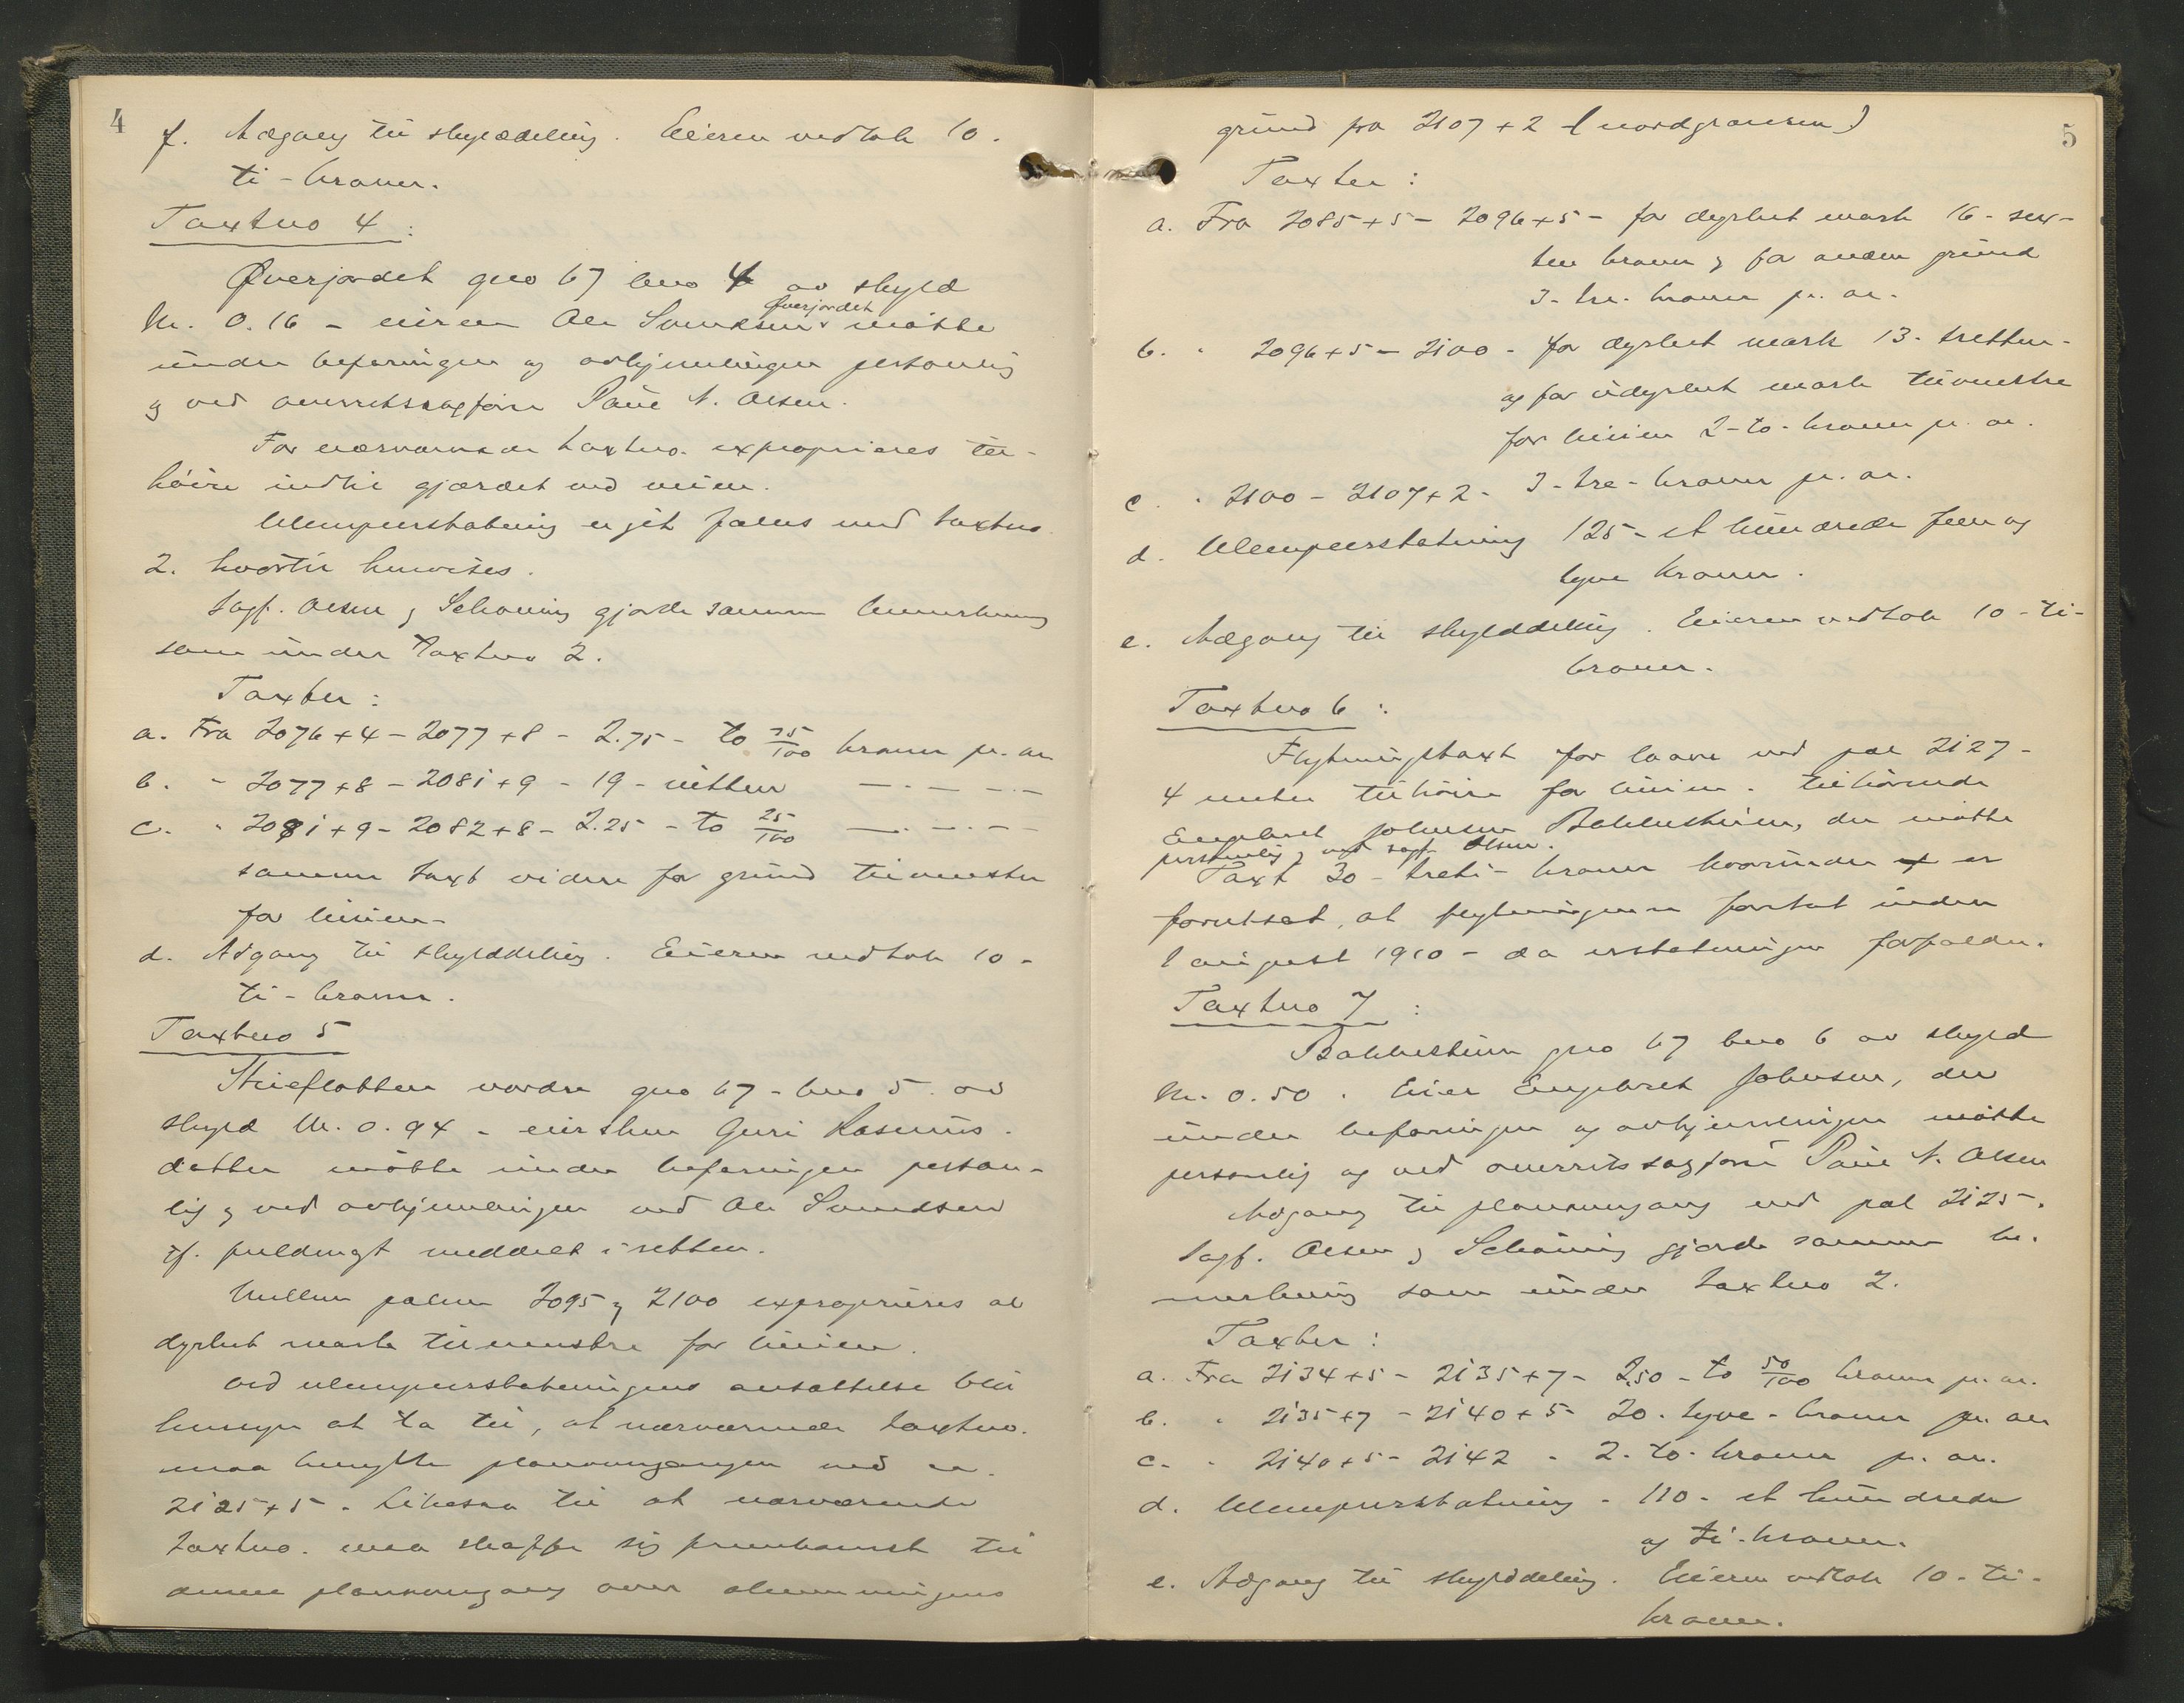 4
f. Adgang til skylddeling. Eieren vedtok 10.
ti - kroner.
Taxtno 4:
Øverjordet gno 67 bno 4 av skyld
Mr. 0.16 - eieren Ole Svendsen Øverjordet møtte
under befaringen og avhjemlingen personlig
og ved overretssagfører Paul N. Olsen.
For nærværende taxtno. exproprieres til-
høire indtil gjærdet ved veien.
Ulempeerstatning er git fælles med taxtno
2. hvortil henvises.
Sagf. Olsen og Schøning gjorde samme bemerkning
som under Taxtno 2.
Taxter:
a. Fra 2076+4 - 2077+8 - 2.75 - to 75/100 kroner pr. ar
b. - 2077+8 - 2081+9 - 19 - nitten -.-.-
c. - 2081+9 - 2082+8 - 2.25 - to 25/100 -.-.-
samme taxt videre for grund tilvenstre
for linien -
d. Adgang til skylddeling. Eieren vedtok 10 -
ti - kroner.
Taxtno 5
nordre gno 67 - bno 5 av
skyld Mr. 0.94 - eierske Guri Rasmus-
datter møtte under befaringen person-
lig og ved avhjemlingen ved Ole Svendsen
if. fuldmagt meddelt i retten.
Mellem pælene 2095 og 2100 exproprieres al
dyrket mark tilvenstre for linien.
Ved ulempeerstatningens ansættelse blir
hensyn at ta til, at nærværende taxtno.
maa benytte planovergangen ved ca.
2125+5 - Likesaa til at nærværende
taxtno. maa skaffe sig fremkomst til
denne planovergang over almenningens
5
grund fra 2107+2 (nordgrænsen)
Taxter:
a. Fra 2085+5 - 2096+5 - for dyrket mark 16 - sek-
ten kroner og for anden grund
3 - tre - kroner pr. ar.
b. - 2096+5 - 2100 - for dyrket mark 13 - tretten -
og for udyrket mark tilvenstre
for linien 2 - to - kroner pr. ar.
c. - 2100 - 2107+2 - 3 - tre - kroner pr. ar.
d. Ulempeerstatning 125 - et hundrede fem og
tyve kroner.
e. Adgang til skylddeling. Eieren vedtok 10 - ti -
kroner.
Taxtno 6:
Flytningstaxt for laave ved pæl 2127 -
4 meter tilhøire for linien. Tilhørende
Engebret Johnsen Bakkesteien, der møtte
personlig og ved sagf. Olsen.
Taxt 30 - treti - kroner hvorunder er
forutsat, at flytningen er foretat inden
1 august 1910 - da erstatningen forfalder.
Taxtno 7:
Bakkesteien gno 67 bno 6 av skyld
Mr. 0.50. Eier Engebret Johnsen, der
under befaringen og avhjemlingen møtte
personlig og ved overretssagfører Paul N. Olsen
Adgang til planovergang ved pæl 2125.
Sagf. Olsen og Schøning gjorde samme be-
merkning som under taxtno 2.
Taxter:
a. Fra 2134+5 - 2135+7 - 2.50 - to 50/100 kroner pr. ar.
b. - 2135+7 - 2140+5 - 20 - tyve - kroner pr. ar
c. - 2140+5 - 2142 - 2 - to - kroner pr. ar.
d. Ulempeerstatning - 110 - et hundrede
og ti - kroner.
e. Adgang til skylddeling. Eieren vedtok 10 - ti -
kroner.